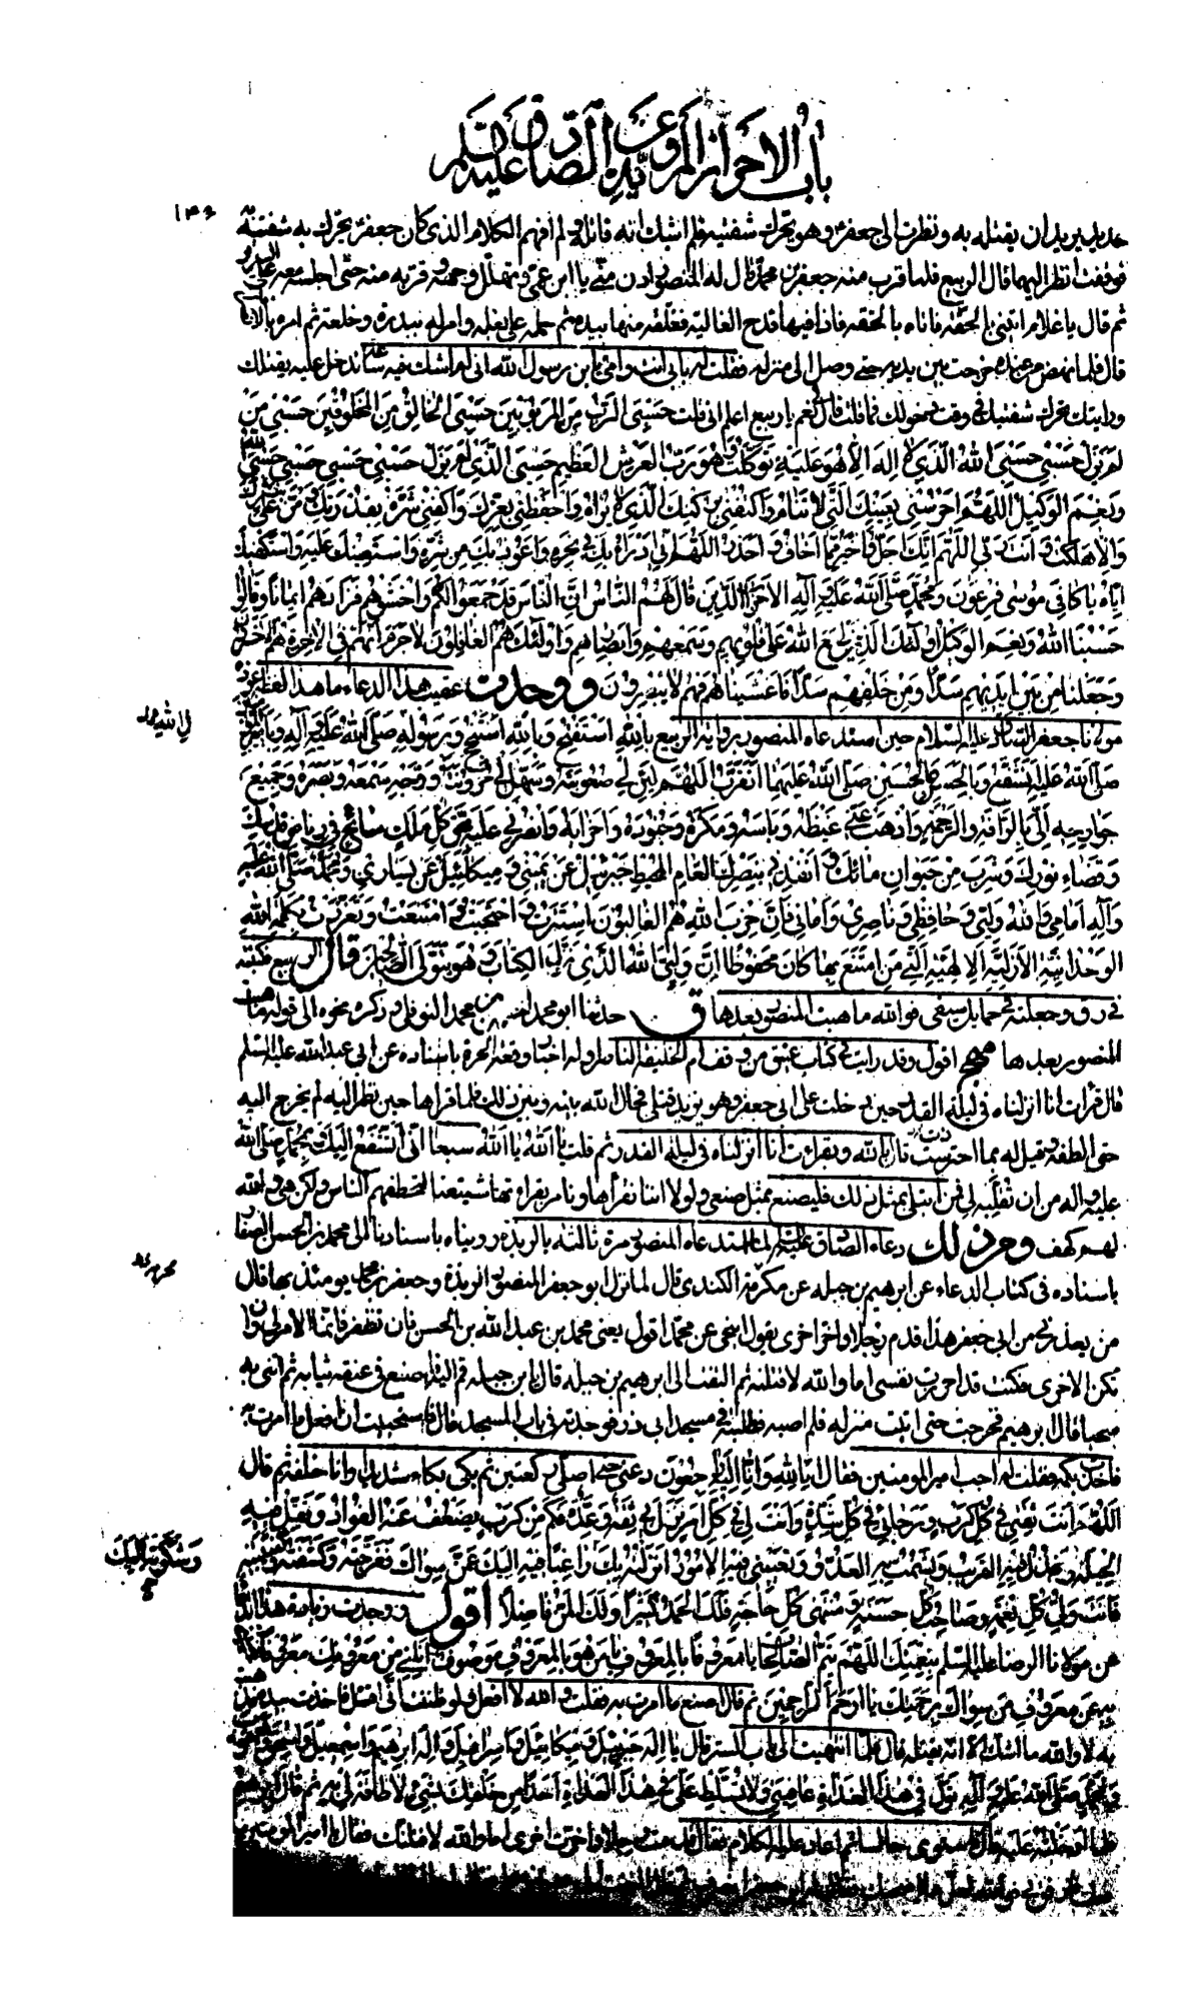 باب الاحراز المروية عن الصادق عليه السلم
١٤٦
حديد يريد ان يقتله به ونظرت الى جعفر وهو يحرك شفتيه فلم اشك انه قاتله ولم افهم الكلام الذى كان جعفر يحرك به شفتيه
فوقفت انظر اليهما قال الربيع فلما قرب منه جعفر بن محمد قال له المنصور ادن منى يا ابن عمى وتهلل وجهه وقربه منه حتى اجلسه معه على السرير
ثم قال يا غلام ائتنى بالحقة فاتاه بالحقه فاذا فيها قدح الغالية فغلفه منها بيده ثم حمله على بغله وامر له ببدرة وخلعة ثم امره بالانصراف
قال فلما نهض من عنده خرجت بين يديه حتى وصل الى منزله فقلت له بابى انت وامى يا بن رسول الله انى لم اشك فيه ساعة تدخل عليه يقتلك
ورايتك تحرك شفتيك فى وقت دخولك فما قلت قال لى نعم يا ربيع اعلم انى قلت حَسْبِىَ الرَّبُّ مِنَ المَرْبُوبِينَ حَسْبِىَ الخَالِقُ مِنَ المَخْلُوقِينَ حَسْبِى مَنْ
لَمْ يَزَلْ حَسْبِى حَسْبِىَ اللهُ الَّذِى لَا اِلهَ اِلَّا هُوَ عَلَيْهِ تَوَكَّلْتُ وَهُوَ رَبُّ العَرْشِ العَظِيمِ حَسْبِىَ الَّذِى لَمْ يَزَلْ حَسْبِى حَسْبِى حَسْبِى حَسْبِىَ اللهُ
وَنِعْمَ الوَكِيلُ اللّهُمَّ احْرُسْنِى بِعَيْنِكَ الَّتِى لا تَنَامُ وَاكْنُفْنِى بِرُكْنِكَ الَّذِى لا يُرَامُ وَاحْفَظْنِى بِعِزِّكَ وَاكْفِنِى شَرَّهُ بِقُدْرَتِكَ وَمُنَّ عَلَىَّ بِنَصْرِكَ
وَاِلَّا هَلَكْتُ وَاَنْتَ رَبِّى اللّهُمَّ اِنَّكَ اَجَلُّ وَاَخْيَرُ مِمَّا اَخَافُ وَاَحْذَرُ اللّهُمَّ اِنِّى اَدْرَأُ بِكَ فِى نَحْرِهِ وَاَعُوذُ بِكَ مِنْ شَرِّهِ وَاَسْتَعِينُكَ عَلَيْهِ وَاَسْتَكْفِيكَ
اِيَّاهُ يَا كَافِىَ مُوسَى فِرْعَوْنَ وَمُحَمَّدٍ صَلَّى اللهُ عَلَيْهِ وَآلِهِ الاَحْزَابَ الَّذِينَ قَالَ لَهُمُ النَّاسُ اِنَّ النَّاسَ قَدْ جَمَعُوا لَكُمْ فَاخْشَوْهُمْ فَزَادَهُمْ اِيمَانًا وَقَالُوا
حَسْبُنَا اللهُ وَنِعْمَ الوَكِيلُ اُولئِكَ الَّذِينَ طَبَعَ اللهُ عَلَى قُلُوبِهِمْ وَسَمْعِهِمْ وَاَبْصَارِهِمْ وَاُولئِكَ هُمُ الغَافِلُونَ لَا جَرَمَ اَنَّهُمْ فِى الآخِرَةِ هُمُ الاَخْسَرُونَ
وَجَعَلْنَا مِنْ بَيْنِ اَيْدِيهِمْ سَدًّا وَمِنْ خَلْفِهِمْ سَدًّا فَاَغْشَيْنَاهُمْ فَهُمْ لا يُبْصِرُونَ ووجدت عقيب هذا الدعاء ما هذا لفظه
مولانا جعفر الصادق عليه السلام حين استدعاه المنصور برواية الربيع بِاللهِ اَسْتَفْتِحُ وَبِاللهِ اَسْتَنْجِحُ وَبِرَسُولِهِ صَلَّى اللهُ عَلَيْهِ وَآلِهِ
صَلَّى اللهُ عَلَيْهِ اَتَشَفَّعُ وَبِالحَسَنِ وَالحُسَيْنِ صَلَّى اللهُ عَلَيْهِمَا اَتَقَرَّبُ اللّهُمَّ لَيِّنْ لِى صُعُوبَتَهُ وَسَهِّلْ لِى حُزُونَتَهُ وَوَجِّهْ سَمْعَهُ وَبَصَرَهُ وَجَمِيعَ
جَوَارِحِهِ اِلَىَّ بِالرَّأْفَةِ وَالرَّحْمَةِ وَاَذْهِبْ عَنِّى غَيْظَهُ وَبَاْسَهُ وَمَكْرَهُ وَجُنُودَهُ وَاَحْزَابَهُ وَانْصُرْنِى عَلَيْهِ بِحَقِّ كُلِّ مَلَكٍ سَائِحٍ فِى رِيَاضِ قُدْسِكَ
وَفَضَاءِ نُورِكَ وَشَرِبَ مِنْ حَيَوَانِ مَائِكَ وَاَنْقِذْنِى بِنَصْرِكَ العَامِّ المُحِيطِ جَبْرَئِيلُ عَنْ يَمِينِى وَمِيكَائِيلُ عَنْ يَسَارِى وَمُحَمَّدٌ صَلَّى اللهُ عَلَيْهِ
وَآلِهِ اَمَامِى وَاللهُ وَلِيِّى وَحَافِظِى وَنَاصِرِى وَاَمَانِى فَاِنَّ حِزْبَ اللهِ هُمُ الغَالِبُونَ اسْتَتَرْتُ وَاحْتَجَبْتُ وَامْتَنَعْتُ وَتَعَزَّزْتُ بِكَلِمَةِ اللهِ
الوَحْدَانِيَّةِ الاَزَلِيَّةِ الاِلهِيَّةِ الَّتِى مَنِ امْتَنَعَ بِهَا كَانَ مَحْفُوظًا اِنَّ وَلِيِّىَ اللهُ الَّذِى نَزَّلَ الكِتَابَ وَهُوَ يَتَوَلَّى الصَّالِحِينَ قال الربيع فكتبته
فى رق وجعلته فى حمايل سيفى فوالله ما هبت المنصور بعدها ق حدثنا ابو محمد محمد النوفلى وذكر نحوه الى قوله ما هبت
المنصور بعدها مهج اقول وقد رايت فى كتاب عتيق من وقف ام الخليفة الناصر اوله اخبار وقعة الحرة باسناده عن ابى عبدالله عليه السلم
قال قرات انا انزلناه فى ليلة القدر حين دخلت على ابى جعفر وهو يريد قتلى فحال الله بينه وبين ذلك فلما قراها حين نظر اليه لم يخرج اليه
حتى الطفه وقيل له بما احترست قال بالله وبقراءة انا انزلناه فى ليلة القدر ثم قلت يا الله يا الله سبعا انى اتشفع اليك بمحمد صلى الله
عليه واله من ان تقلبه لى فمن ابتلى بمثل ذلك فليصنع مثل صنعى ولولا اننا نقراها ونامر بقراءتها شيعتنا لتخطفهم الناس ولكن هى والله
لهم كهف ومن ذلك دعاء الصادق عليه السلم لما استدعاه المنصور مرة ثالثة بالربذة رويناه باسنادنا الى محمد بن الحسن الصفار
باسناده فى كتاب الدعاء عن ابرهيم بن جبله عن مخرمة الكندى قال لما نزل ابو جعفر المنصور الربذة وجعفر بن محمد يومئذ بها قال
من يعذرنى من ابى جعفر هذا قدم رجلا واخر اخرى يقول اتنحى عن محمد اقول يعنى محمد بن عبد الله بن الحسن فان تظفر فانما الامر لى وان
تكن الاخرى فكنت قد احرزت نفسى اما والله لاقتلنه ثم التفت الى ابرهيم بن جبله قال يا بن جبله قم اليه فضع فى عنقه ثيابه ثم ائتنى به
سحبا قال ابرهيم فخرجت حتى اتيت منزله فلم اصبه فطلبته فى مسجد ابى ذر فوجدته فى باب المسجد قال فاستحييت ان افعل ما امرت به
فاخذت بكمه فقلت له اجب امير المومنين فقال انا لله وانا اليه راجعون دعنى حتى اصلى ركعتين ثم بكى بكاء شديدا وانا خلفه ثم قال
اللّهُمَّ اَنْتَ ثِقَتِى فِى كُلِّ كَرْبٍ وَرَجَائِى فِى كُلِّ شِدَّةٍ وَاَنْتَ لِى فِى كُلِّ اَمْرٍ نَزَلَ بِى ثِقَةٌ وَعُدَّةٌ فَكَمْ مِنْ كَرْبٍ يَضْعُفُ عَنْهُ الفُؤَادُ وَتَقِلُّ فِيهِ
الحِيلَةُ وَيَخْذُلُ فِيهِ القَرِيبُ وَيَشْمَتُ بِهِ العَدُوُّ وَتُعْيِينِى فِيهِ الاُمُورُ اَنْزَلْتُهُ بِكَ رَاغِبًا فِيهِ اِلَيْكَ عَمَّنْ سِوَاكَ فَفَرَّجْتَهُ وَكَشَفْتَهُ وَكَفَيْتَنِيهِ
وَشَكَوْتُهُ اِلَيْكَ
فَاَنْتَ وَلِىُّ كُلِّ نِعْمَةٍ وَصَاحِبُ كُلِّ حَسَنَةٍ وَمُنْتَهَى كُلِّ حَاجَةٍ فَلَكَ الحَمْدُ كَثِيرًا وَلَكَ المَنُّ فَاضِلًا اقول ووجدت زيادة هذا الدعاء
عن مولانا الرضا عليه السلم بِنِعْمَتِكَ اللّهُمَّ تَتِمُّ الصَّالِحَاتُ يَا مَعْرُوفًا بِالمَعْرُوفِ يَا مَنْ هُوَ بِالمَعْرُوفِ مَوْصُوفٌ اَنِلْنِى مِنْ مَعْرُوفِكَ مَعْرُوفًا تُغْنِينِى
بِهِ عَنْ مَعْرُوفِ مَنْ سِوَاكَ بِرَحْمَتِكَ يَا اَرْحَمَ الرَّاحِمِينَ ثم قال اصنع ما امرت به فقلت والله لا افعل ولو ظننت انى اقتل فاخذت بيده فذهبت
به لا والله ما اشك الا انه يقتله قال فلما انتهيت الى باب الستر قال يَا اِلهَ جَبْرَئِيلَ وَمِيكَائِيلَ وَاِسْرَافِيلَ وَاِلهَ اِبْرهِيمَ وَاِسْمعِيلَ وَاِسْحقَ وَيَعْقُوبَ
وَمُحَمَّدٍ صَلَّى اللهُ عَلَيْهِ وَآلِهِ تَوَلَّ فِى هذِهِ الغَدَاةِ عَافِيَتِى وَلَا تُسَلِّطْ عَلَىَّ فِى هذِهِ الغَدَاةِ اَحَدًا مِنْ خَلْقِكَ بِشَىْءٍ لا طَاقَةَ لِى بِهِ ثم قال ابرهيم
فلما ادخلته عليه قال فاستوى جالسا ثم اعاد عليه الكلام فقال قدمت رجلا واخرت اخرى اما والله لاقتلنك فقال يا امير المومنين